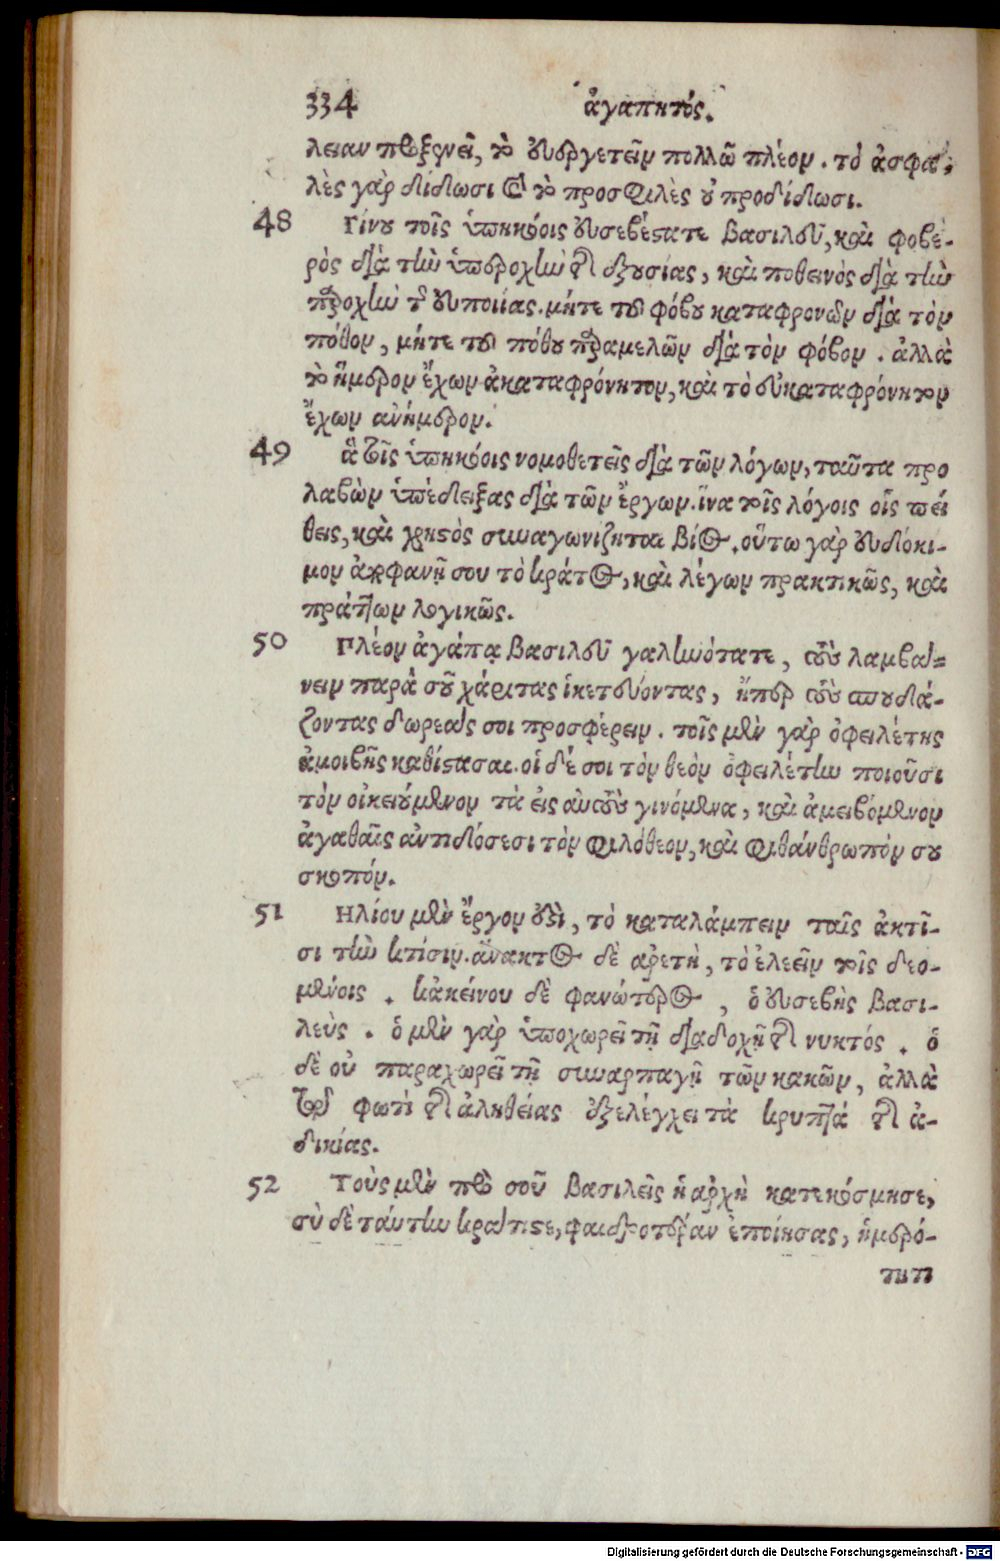 334 ἀγαπητός.
λειαν προξενεῖ, τὸ εὐεργετεῖν πολλῶ πλέον. τὸ ἀσφα-
λὲς γὰρ δίδωσι καὶ τὸ προσφιλὲς οὐ προδίδωσι.
48 Γίνου τοῖς ὑπηκόοις εὐσεβέστατε βασιλεῦ, καὶ φοβε-
ρὸς διὰ τὴν ὑπεροχὴν τῆς ἐξουσίας, καὶ ποθεινὸς διὰ τὴν
παροχὴν τῆς εὐποιίας. μήτε τοῦ φόβου καταφρονῶν διὰ τὸν
πόθον, μήτε τοῦ πόθου παραμελῶν διὰ τὸν φόβον. ἀλλὰ
τὸ ἥμερον ἔχων ἀκαταφρόνητον, καὶ τὸ εὐκαταφρόνητον
ἔχων ἀνήμερον.
49 ἃ τοῖς ὑπηκόοις νομοθετεῖς διὰ τῶν λόγων, ταῦτα προ
λαβὼν ὑπέδειξας διὰ τῶν ἔργων. ἵνα τοῖς λόγοις οἷς πεί
θεις, καὶ χρηστὸς συναγωνίζηται βίος. οὕτω γὰρ εὐδόκι-
μον ἀποφανῇ σου τὸ κράτος, καὶ λέγων πρακτικῶς, καὶ
πράττων λογικῶς.
50 Πλέον ἀγάπα βασιλεῦ γαληνότατε, τοὺς λαμβά-
νειν παρὰ σοῦ χάριτας ἱκετεύοντας, ἤπερ τοὺς σπουδά-
ζοντας δωρεάς σοι προσφέρειν. τοῖς μὲν γὰρ ὀφειλέτης
ἀμοιβῆς καθίστασαι. οἱ δέ σοι τὸν θεὸν ὀφειλέτην ποιοῦσι
τὸν οἰκειούμενον τὰ εἰς αὐτοὺς γινόμενα, καὶ ἀμειβόμενον
ἀγαθαῖς ἀντιδόσεσι τὸν φιλόθεον, καὶ φιλάνθρωπόν σου
σκοπόν.
51 Ηλίου μὲν ἔργον ἐστὶ, τὸ καταλάμπειν ταῖς ἀκτῖ-
σι τὴν κτίσιν. ἄνακτος δὲ ἀρετὴ, τὸ ἐλεεῖν τοῖς δεο-
μένοις. κἀκείνου δὲ φανώτερος, ὁ εὐσεβὴς βασι-
λεὺς. ὁ μὲν γὰρ ὑποχωρεῖ τῇ διαδοχῇ τῆς νυκτός. ὁ
δὲ οὐ παραχωρεῖ τῇ συναρπαγῇ τῶν κακῶν, ἀλλὰ
τῷ φωτὶ τῆς ἀληθείας ἐξελέγχει τὰ κρυπτά τῆς ἀ-
δικίας.
52 Τοὺς μὲν πρὸ σοῦ βασιλεῖς ἡ ἀρχὴ κατεκόσμησε,
σὺ δὲ ταύτην κράτιστε, φαιδροτέραν ἐποίησας, ἡμερό-
τητι
Digitalisierung gefördert durch die Deutsche Forschungsgemeinschaft - DFG